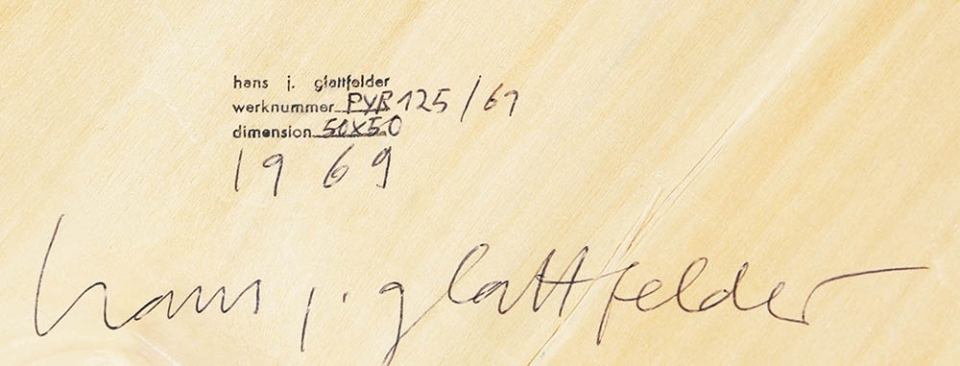 hans j. glattfelder
werknummer PYR 125/69
dimension 50x50
1969
hans j. glattfelder